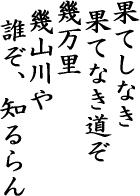 果てしなき
果てなき道ぞ
幾万里
幾山川や
誰ぞ、知るらん